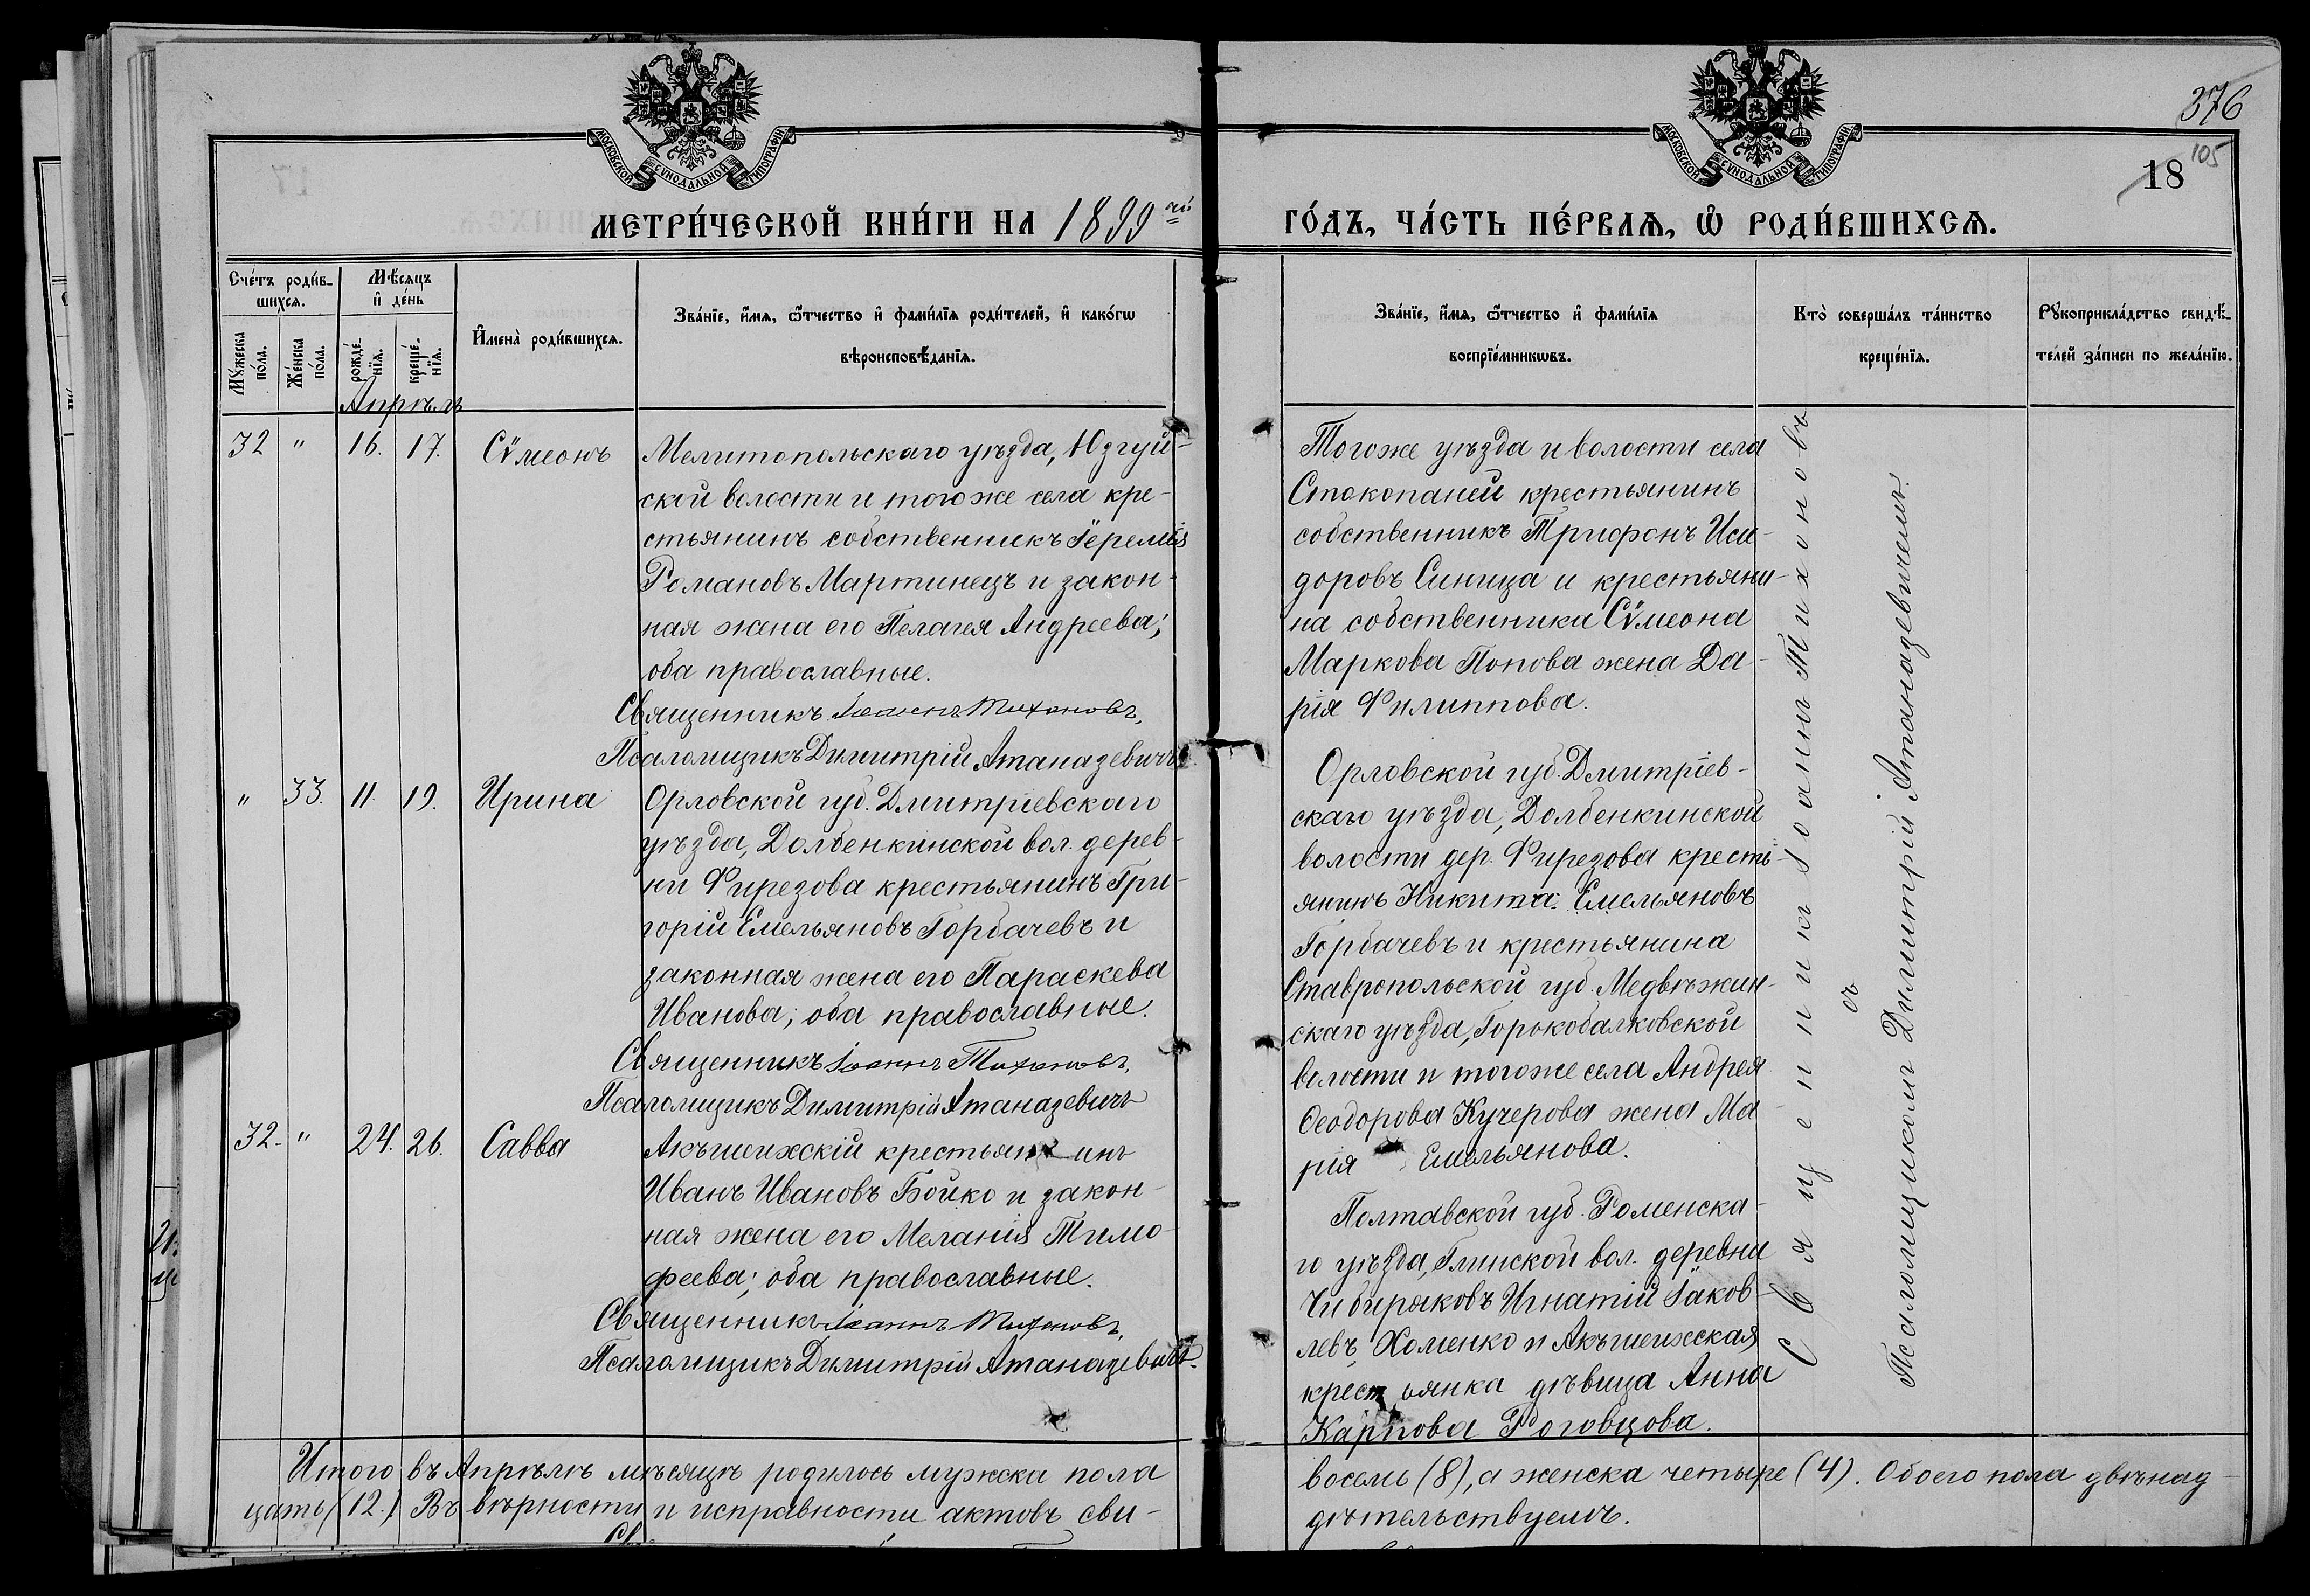 376
105
18
МОСКОВСКОЙ СѴНОДАЛЬНОЙ ТИПОГРАФІИ
МОСКОВСКОЙ СѴНОДАЛЬНОЙ ТИПОГРАФІИ
МЕТРИ́ЧЕСКОЙ КНИ́ГИ НА 1899ый
ГО́ДЪ, ЧА́СТЬ ПЕ́РВАѦ, Ѡ҆ РОДИ́ВШИХСѦ.
Сче́тъ роди́в-
шихсѧ.
Мꙋ́жеска по́ла.
Же́нска по́ла.
Мѣ́сѧцъ
и҆ де́нь
рожде́-нїѧ.
креще́-нїѧ.
И҆мена̀ роди́вшихсѧ.
Зва́нїе, и҆́мѧ, ѻ҆́тчество и҆ фами́лїѧ роди́телей, и҆ како́гѡ
вѣроисповѣ́данїѧ.
Зва́нїе, и҆́мѧ, ѻ҆́тчество и҆ фами́лїѧ
воспрїе́мникѡвъ.
Кто̀ соверша́лъ та́инство
креще́нїѧ.
Рꙋкоприкла́дство свидѣ́-
телей за́писи по жела́нїю.
Апрѣль
32 " 16. 17. Сѵмеонъ
Мелитопольскаго уѣзда, Юзгуй-
ской волости и того же села кре-
стьянинъ собственникъ Іеремія
Романовъ Мартинецъ и закон-
ная жена его Пелагея Андреева;
оба православные.
Священникъ Іоаннъ Тихоновъ,
Псаломщикъ Димитрій Атаназевичъ
Тогоже уѣзда и волости села
Стокопаней крестьянинъ
собственникъ Трифонъ Иси-
доровъ Синица и крестьяни-
на собственника Сѵмеона
Маркова Попова жена Да-
рія Филиппова.
" 33. 11. 19. Ирина
Орловской губ. Дмитріевскаго
уѣзда, Долбенкинской вол. дерев-
ни Фирезова крестьянинъ Гри-
горій Емельяновъ Горбачевъ и
законная жена его Параскева
Иванова; оба православные.
Священникъ Іоаннъ Тихоновъ,
Псаломщикъ Димитрій Атаназевичъ
Орловской губ. Дмитріев-
скаго уѣзда, Долбенкинской
волости дер. Фирезова кресть-
янинъ Никита Емельяновъ
Горбачевъ и крестьянина
Ставропольской губ. Медвѣжин-
скаго уѣзда, Горокобалковской
волости и тогоже села Андрея
Ѳеодорова Кучерова жена Ма-
рія Емельянова.
32. " 24. 26. Савва
Акъшеихскій крестьянинъ
Иванъ Ивановъ Бойко и закон-
ная жена его Меланія Тимо-
феева; оба православные.
Священникъ Іоаннъ Тихоновъ,
Псаломщикъ Димитрій Атаназевичъ.
Полтавской губ. Роменска-
го уѣзда, Глинской вол. деревни
Чибиряковъ Игнатій Іаков-
левъ Хоменко и Акъшеихская
крестьянка дѣвица Анна
Карпова Роговцова.
Священникъ Іоаннъ Тихоновъ
съ
Псаломщикомъ Димитрій Атаназевичемъ.
Итого въ Апрѣлѣ мѣсяцѣ родилось мужска пола
восемь (8), а женска четыре (4). Обоего пола двѣнад-
цать (12.) Въ вѣрности и исправности актовъ сви-
дѣтельствуемъ.